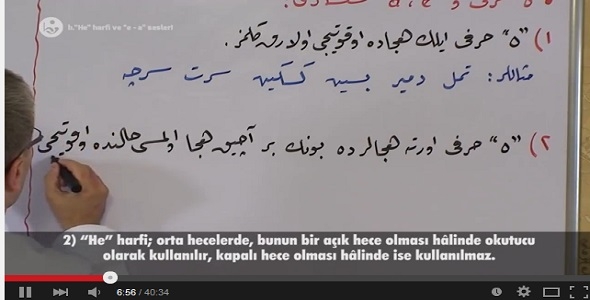 h."He" harfi ve "a - e" sesleri
۱) "ه" حرفی ایلك هجاده اوقوتیجی اولارق كلمز.
مثاللر: تمل دمیر بسین كسكین سرت سرچه
۲) "ه" حرفی اورته هجالرده بونك بر آچیق هجا اولمسی حالنده اوقوتیجی
2) “He” harfi; orta hecelerde, bunun bir açık hece olması hâlinde okutucu
olarak kullanılır, kapalı hece olması hâlinde ise kullanılmaz.
6:56 / 40:34